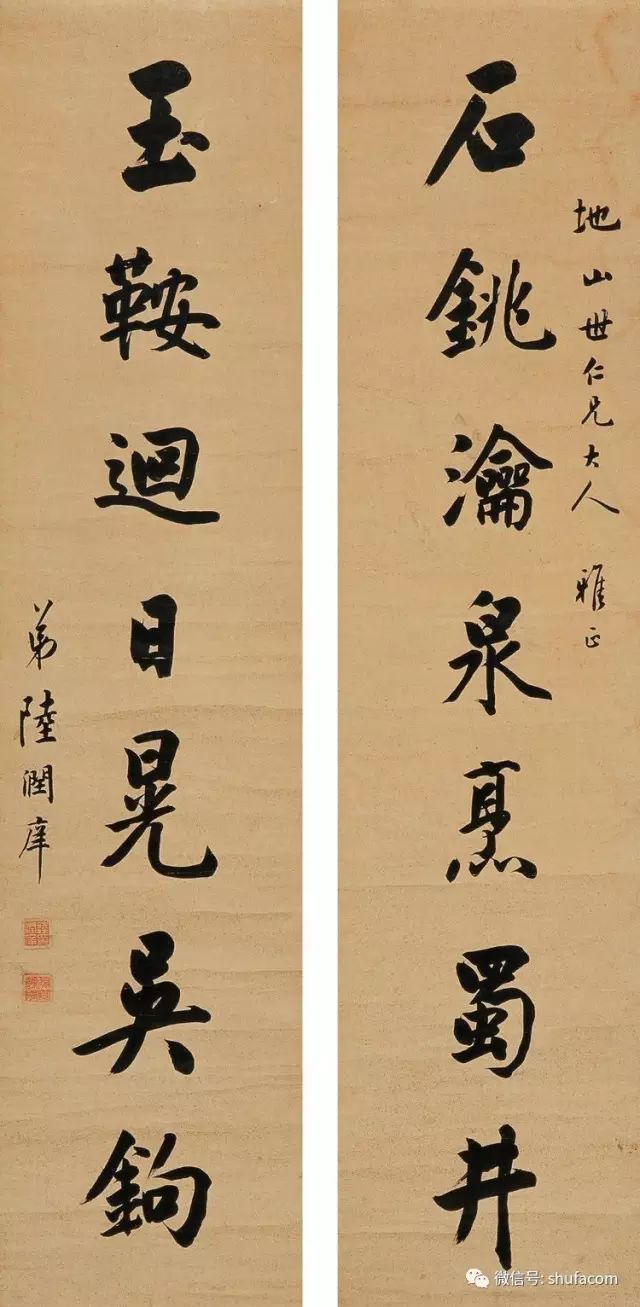 地山世仁兄大人 雅正
石銚瀹泉蜀井
玉鞍迴日晃吳鉤
弟陸潤庠
微信号: shufacom